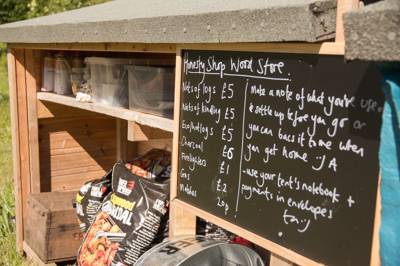 Honesty Shop Word Store.
Nets of logs £5
Nets of kindling £5
£5
Charcoal £6
Firelighters £1
Gas £2
Matches 20p
Make a note of what you've used
& settle up before you go or
you can bacs it to me when
you get home :) A
- use your tent's notebook +
payments in envelopes
ta :)
COAL